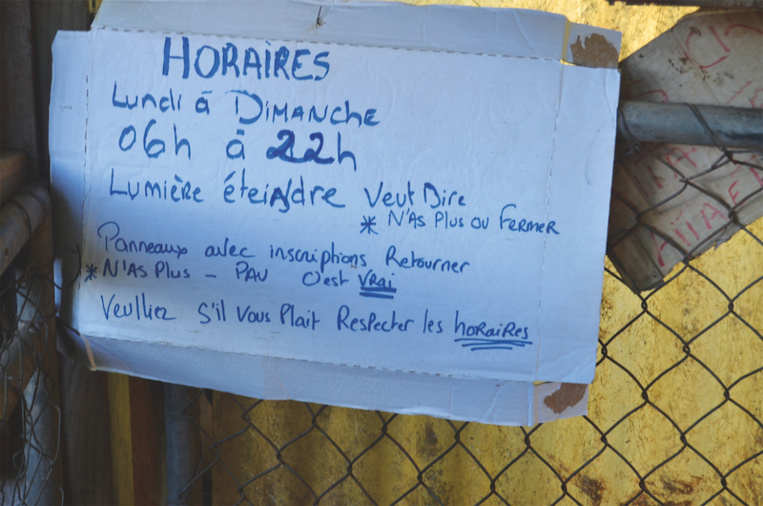 HORAIRES
Lundi à DIMANCHE
06h à 22h
Lumière éteindre Veut Dire
* N'As Plus ou Fermer
Panneaux avec inscriptions Retourner
* N'As Plus - PAV c'est VRAi
Veulliez S'il Vous Plait Respecter les hORaiRes